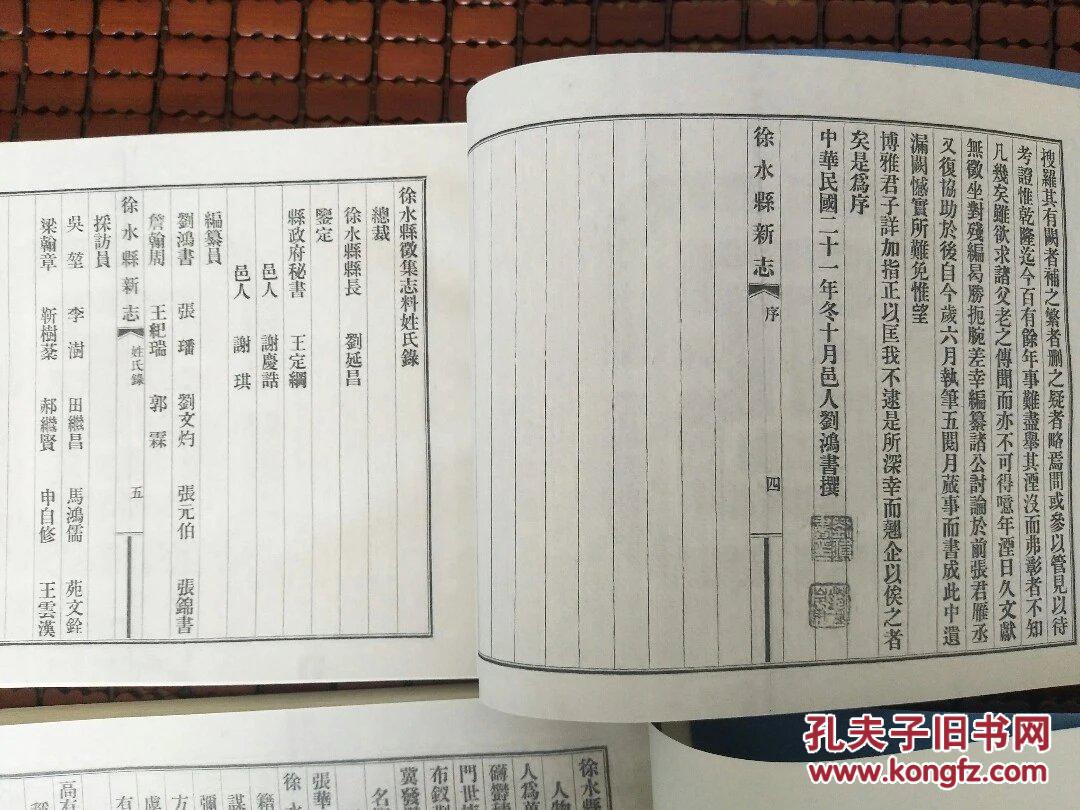 搜羅其有闕者補之繁者刪之疑者略焉間或參以管見以待
考證惟乾隆迄今百有餘年事難盡舉其湮沒而弗彰者不知
凡幾矣雖欲求諸父老之傳聞而亦不可得噫年湮日久文獻
無徵坐對殘編曷勝扼腕差幸編纂諸公討論於前張君雁丞
又復協助於後自今歲六月執筆五閱月蕆事而書成此中遺
漏闕憾實所難免惟望
博雅君子詳加指正以匡我不逮是所深幸而翹企以俟之者
矣是爲序
中華民國二十一年冬十月邑人劉鴻書撰
徐水縣新志 序 四
徐水縣徵集志料姓氏錄
總裁
徐水縣縣長 劉延昌
鑒定
縣政府秘書 王定綱
邑人 謝慶誥
邑人 謝琪
編纂員
劉鴻書 張璠 劉文灼 張元伯 張錦書
詹翰周 王紀瑞 郭霖
徐水縣新志 姓氏錄 五
採訪員
吳堃 李樹 田繼昌 馬鴻儒 苑文銓
梁翰章 靳樹棻 郝繼賢 申自修 王雲漢
徐水縣
人物
人爲萬
門世
布釵
冀發
名
張華
徐水
籍
謀
彌
方
虔
有
高有
孔夫子旧书网
www.kongfz.com